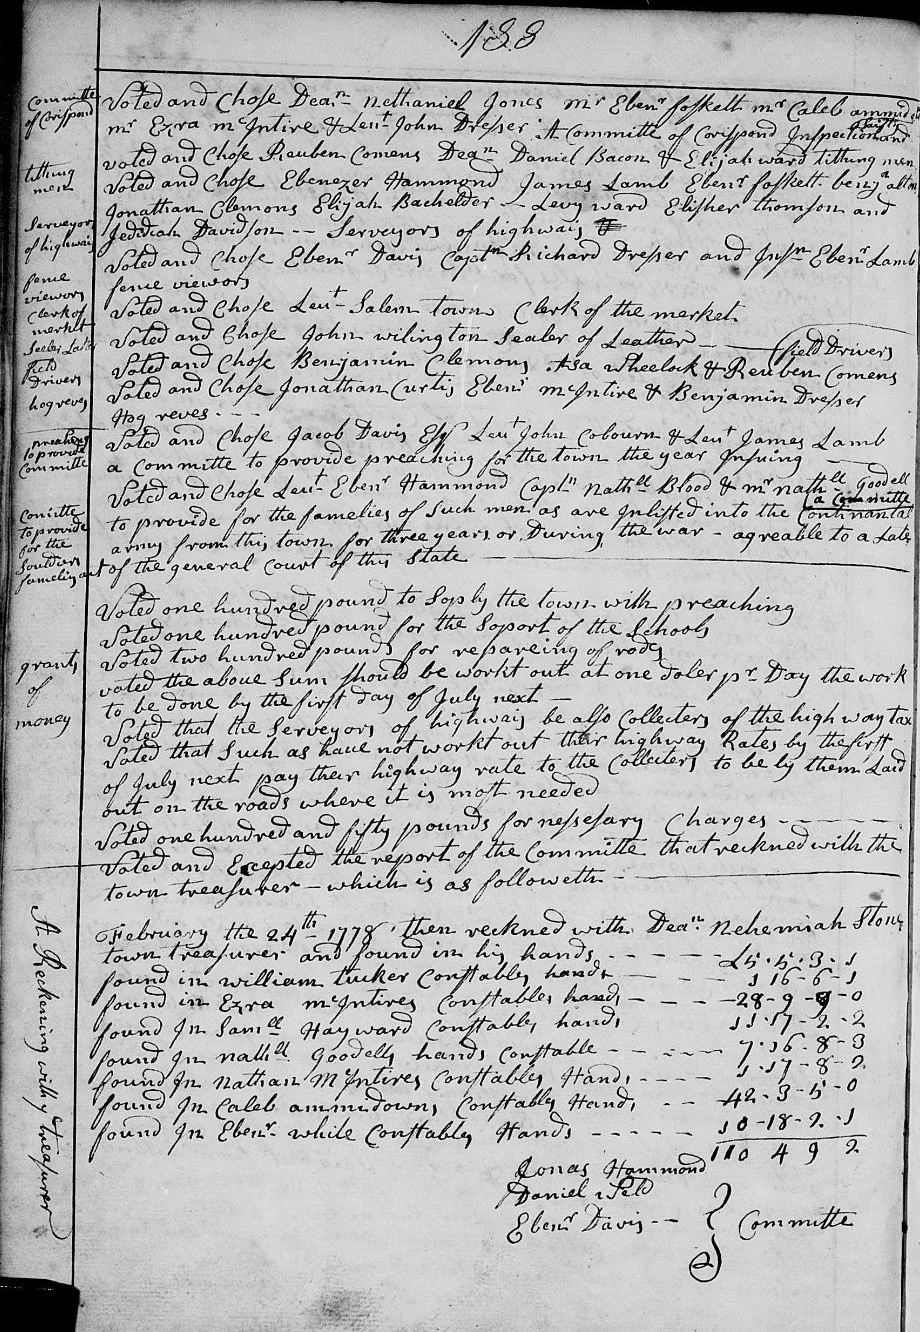 133
Committe of Corispond
Voted and Chose Dean Nethaniel Jones mr Ebenr foskett mr Caleb ammidown
mr Ezra mcIntire & Leut John Dresser A Committe of Corispond Inspection and
tithing men
voted and Chose Reuben Comens Dean Daniel Bacon & Elijah ward tithung men
Voted and Chose Ebenezer Hammond James Lamb Ebenr foskett benjn alton
Serveyors of highways
Jonathan Clemons Elijah Bacheldor - Levy ward Elisher thomson and
Jedidiah Davidson -- Serveyors of highways
fence viewors
Voted and Chose Ebenr Davis Captn Richard Dresser and Insn Ebenr Lamb
fence viewors
Clerk of merket
Voted and Chose Leut Salem town Clerk of the market
Sealer Lather
Voted and Chose John wilington Sealer of Leather
field Drivers
field drivers
Voted and Chose Benjamin Clemons Asa Wheelock & Reuben Comens
hogreves
Voted and Chose Jonathan Curtis Ebenr mcIntire & Benjamin Dresser
Hog reves - - -
preaching to provide Committe
Voted and Chose Jacob Davis Esqr Leut John Cobourn & Leut James Lamb
a Committe to provide preaching for the town the year Insuing
Comitte to provide for the Souldiers famelies
Voted and Chose Leut Ebenr Hammond Captn Nathll Blood & mr nathll Goodell
a Committe
to provide for the famelies of Such men as are Inlisted into the Continantal
army from this town for three years or During the war - agreable to a Late
act of the general Court of this State
grants of money
Voted one hundred pound to Soply the town with preaching
Voted one hundred pound for the Soport of the Schools
Voted two hundred pounds for repareing of rods
voted the above Sum should be workt out at one doler pr Day the work
to be done by the first day of July next -
Voted that the Serveyors of highways be also Collecters of the high way tax
Voted that Such as have not workt out their highway Rates by the first
of July next pay their highway rate to the Collecters to be by them Laid
out on the roads where it is most needed
Voted one hundred and fifty pounds for nessesary Charges
Voted and Excepted the report of the Committe that reckned with the
town treasurer - which is as followeth -
A Reckening with ye Treasurer
February the 24th 1778 then reckned with Dean Nehemiah Stone
town treasurer and found in his hands - - - - - £5 - 5 - 3 - 1
found in william tucker Constables hands - - - 1 16 - 6 - 1
found in Ezra mcIntires Constables hands - - - 28 - 9 - 9 - 0
found In Samll Hayward Constables hands 11 - 17 - 2 - 2
found In nathll Goodells hands Constable - - - 7 - 16 - 8 - 3
found In Nathan McIntires Constables Hands - - - 1 - 17 - 8 - 2
found In Caleb ammidowns Constables Hands - - 42 - 3 - 5 - 0
found In Ebenr white Constables Hands - - - - - 10 - 18 - 2 - 1
110 4 9 2
Jonas Hammond
Daniel Weld
Ebenr Davis -- Committe